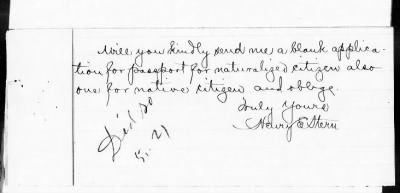 Will you kindly send me a blank applica-
tion for passport for naturalized citizen also
one for native citizen and oblige.
Truly Yours
Henry E Stern
Did so